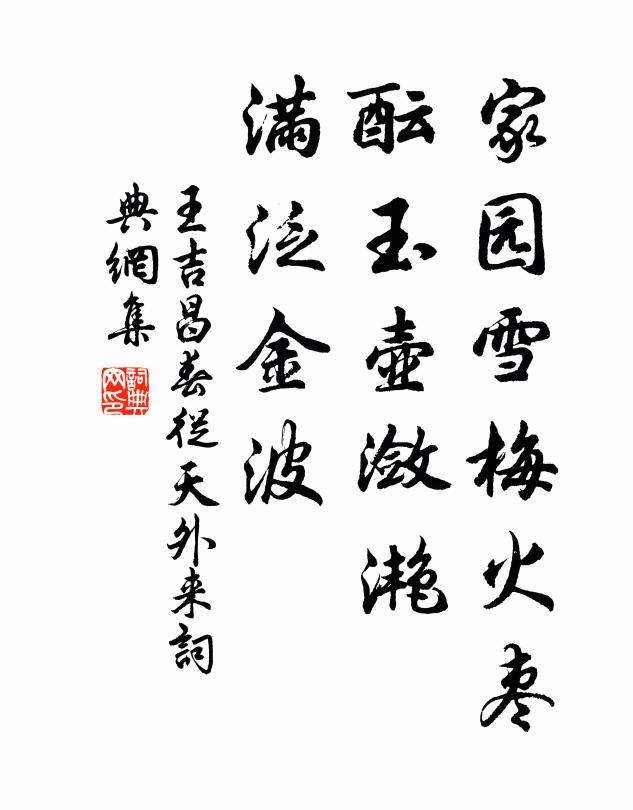 家园雪梅火枣
酝玉壶潋滟
满泛金波
王吉昌春從天外来詞
典網集
詞典網印